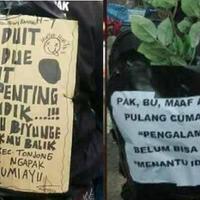 H-7
DUIT
DUE
IT
PENTING
DIK...!!!
U BIYUNGE
KAU BALIK
KEC. TONJONG
NGAPAK
UMIAYU
PAK, BU, MAAF A
PULANG CUMA
"PENGALAM
BELUM BISA
"MENANTU ID